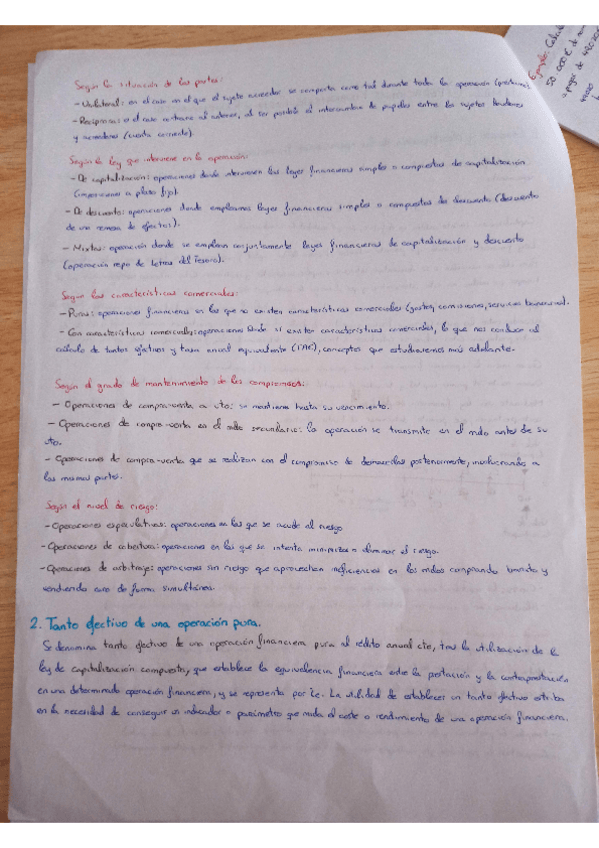 Según la situación de las partes:
- Unilateral: en el caso en el que el sujeto acreedor se comporta como tal durante toda la operación (préstamo)
- Recíproca: es el caso contrario al anterior, al ser posible el intercambio de papeles entre los sujetos deudores
y acreedores (cuenta corriente).
Según la ley que interviene en la operación:
- De capitalización: operaciones donde intervienen las leyes financieras simples o compuestas de capitalización
(imposiciones a plazo fijo).
- De descuento: operaciones donde empleamos leyes financieras simples o compuestas de descuento (descuento
de una remesa de efectos).
- Mixtas: operación donde se emplean conjuntamente leyes financieras de capitalización y descuento
(operación repo de Letras del Tesoro).
Según las características comerciales:
- Puras: operaciones financieras en las que no existen características comerciales (gastos, comisiones, servicios
- Con características comerciales: operaciones donde sí existen características comerciales, lo que nos conduce al
cálculo de tantos efectivos y tasa anual equivalente (TAE), conceptos que estudiaremos más adelante.
Según el grado de mantenimiento de los compromisos:
- Operaciones de compra-venta a vto: se mantiene hasta su vencimiento.
- Operaciones de compra-venta en el mdo secundario: la operación se transmite en el mdo antes de su
vto.
- Operaciones de compra-venta que se realizan con el compromiso de deshacerlas posteriormente, involucrando a
las mismas partes.
Según el nivel de riesgo:
- Operaciones especulativas: operaciones en las que se acude al riesgo
- Operaciones de cobertura: operaciones en las que se intenta minimizar o eliminar el riesgo.
- Operaciones de arbitraje: operaciones sin riesgo que aprovechan ineficiencias en los mdos comprando barato y
vendiendo caro de forma simultánea.
2. Tanto efectivo de una operación pura.
Se denomina tanto efectivo de una operación financiera pura al rédito anual cte, tras la utilización de la
ley de capitalización compuesta, que establece la equivalencia financiera entre la prestación y la contraprestación
en una determinada operación financiera, y se representa por ie. La utilidad de establecer un tanto efectivo estriba
en la necesidad de conseguir un indicador o parámetro que mida el coste o rendimiento de una operación financiera.
Ejemplo: Calcula
50.000 € de